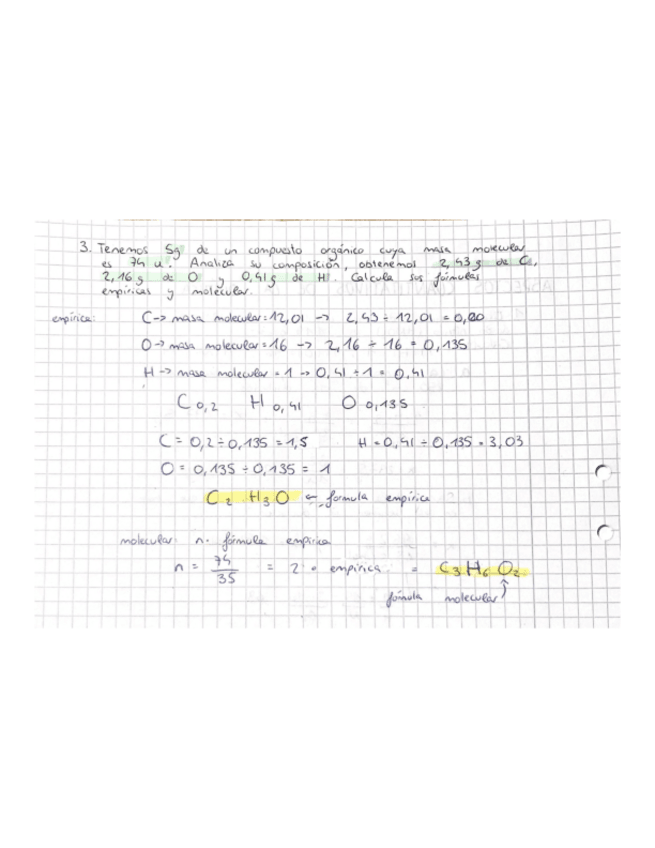 3. Tenemos 5g de un compuesto orgánico cuya masa molecular
es 74 u. Analiza su composición, obtenemos 2,43 g de C,
2,16 g de O y 0,41 g de H. Calcula sus fórmulas
empíricas y molecular.
empírica: C → masa molecular = 12,01 → 2,43 ÷ 12,01 = 0,20
O → masa molecular = 16 → 2,16 ÷ 16 = 0,135
H → masa molecular = 1 → 0,41 ÷ 1 = 0,41
C 0,2 H 0,41 O 0,135
C = 0,2 ÷ 0,135 = 1,5 H = 0,41 ÷ 0,135 = 3,03
O = 0,135 ÷ 0,135 = 1
C2 H3 O ← formula empírica
molecular: n · fórmula empírica
n = 74/35 = 2 · empírica = C3 H6 O2
fórmula molecular